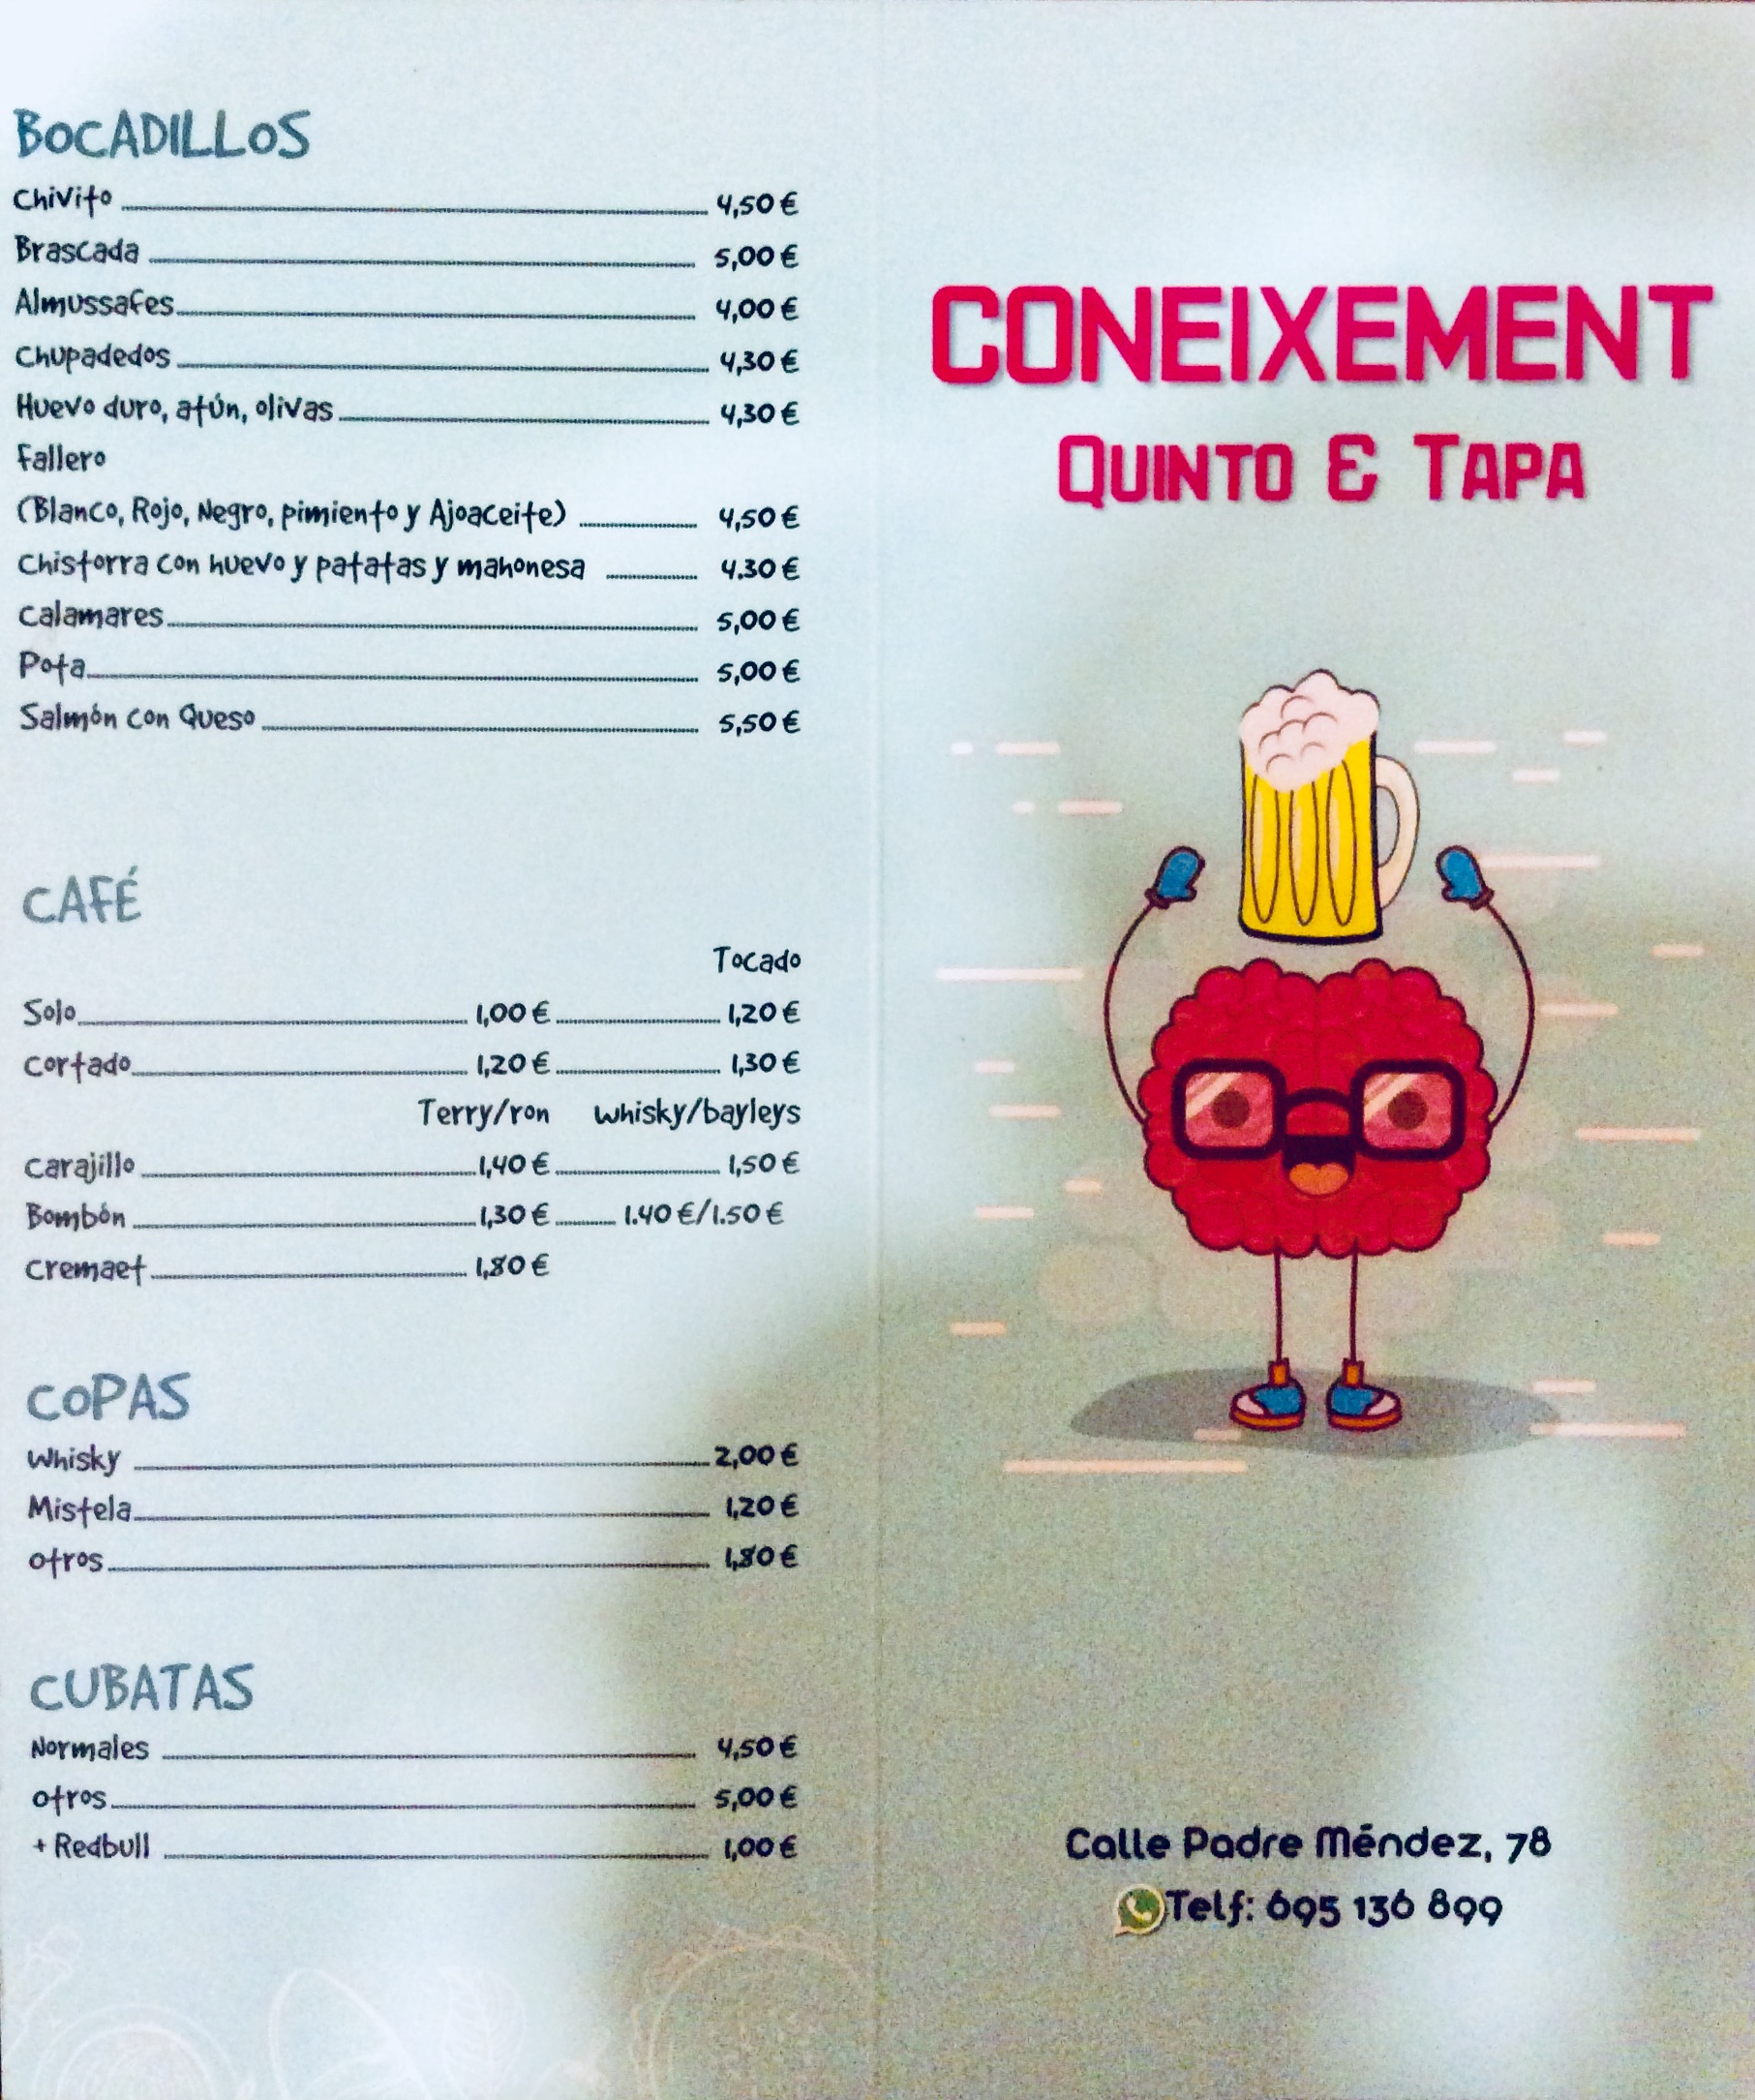 BOCADILLOS
Chivito 4,50 €
Brascada 5,00 €
Almussafes 4,00 €
Chupadedos 4,30 €
Huevo duro, atún, olivas 4,30 €
Fallero
(Blanco, Rojo, Negro, pimiento y Ajoaceite) 4,50 €
Chistorra con huevo y patatas y mahonesa 4.30 €
Calamares 5,00 €
Pota 5,00 €
Salmón con Queso 5,50 €
CAFÉ
Tocado
Solo 1,00 € 1,20 €
Cortado 1,20 € 1,30 €
Terry/ron whisky/bayleys
Carajillo 1,40 € 1,50 €
Bombón 1,30 € 1.40 €/1.50 €
Cremaet 1,80 €
COPAS
Whisky 2,00 €
Mistela 1,20 €
Otros 1,80 €
CUBATAS
Normales 4,50 €
Otros 5,00 €
+ Redbull 1,00 €
CONEIXEMENT
QUINTO & TAPA
Calle Padre Méndez, 78
Telf: 695 136 899